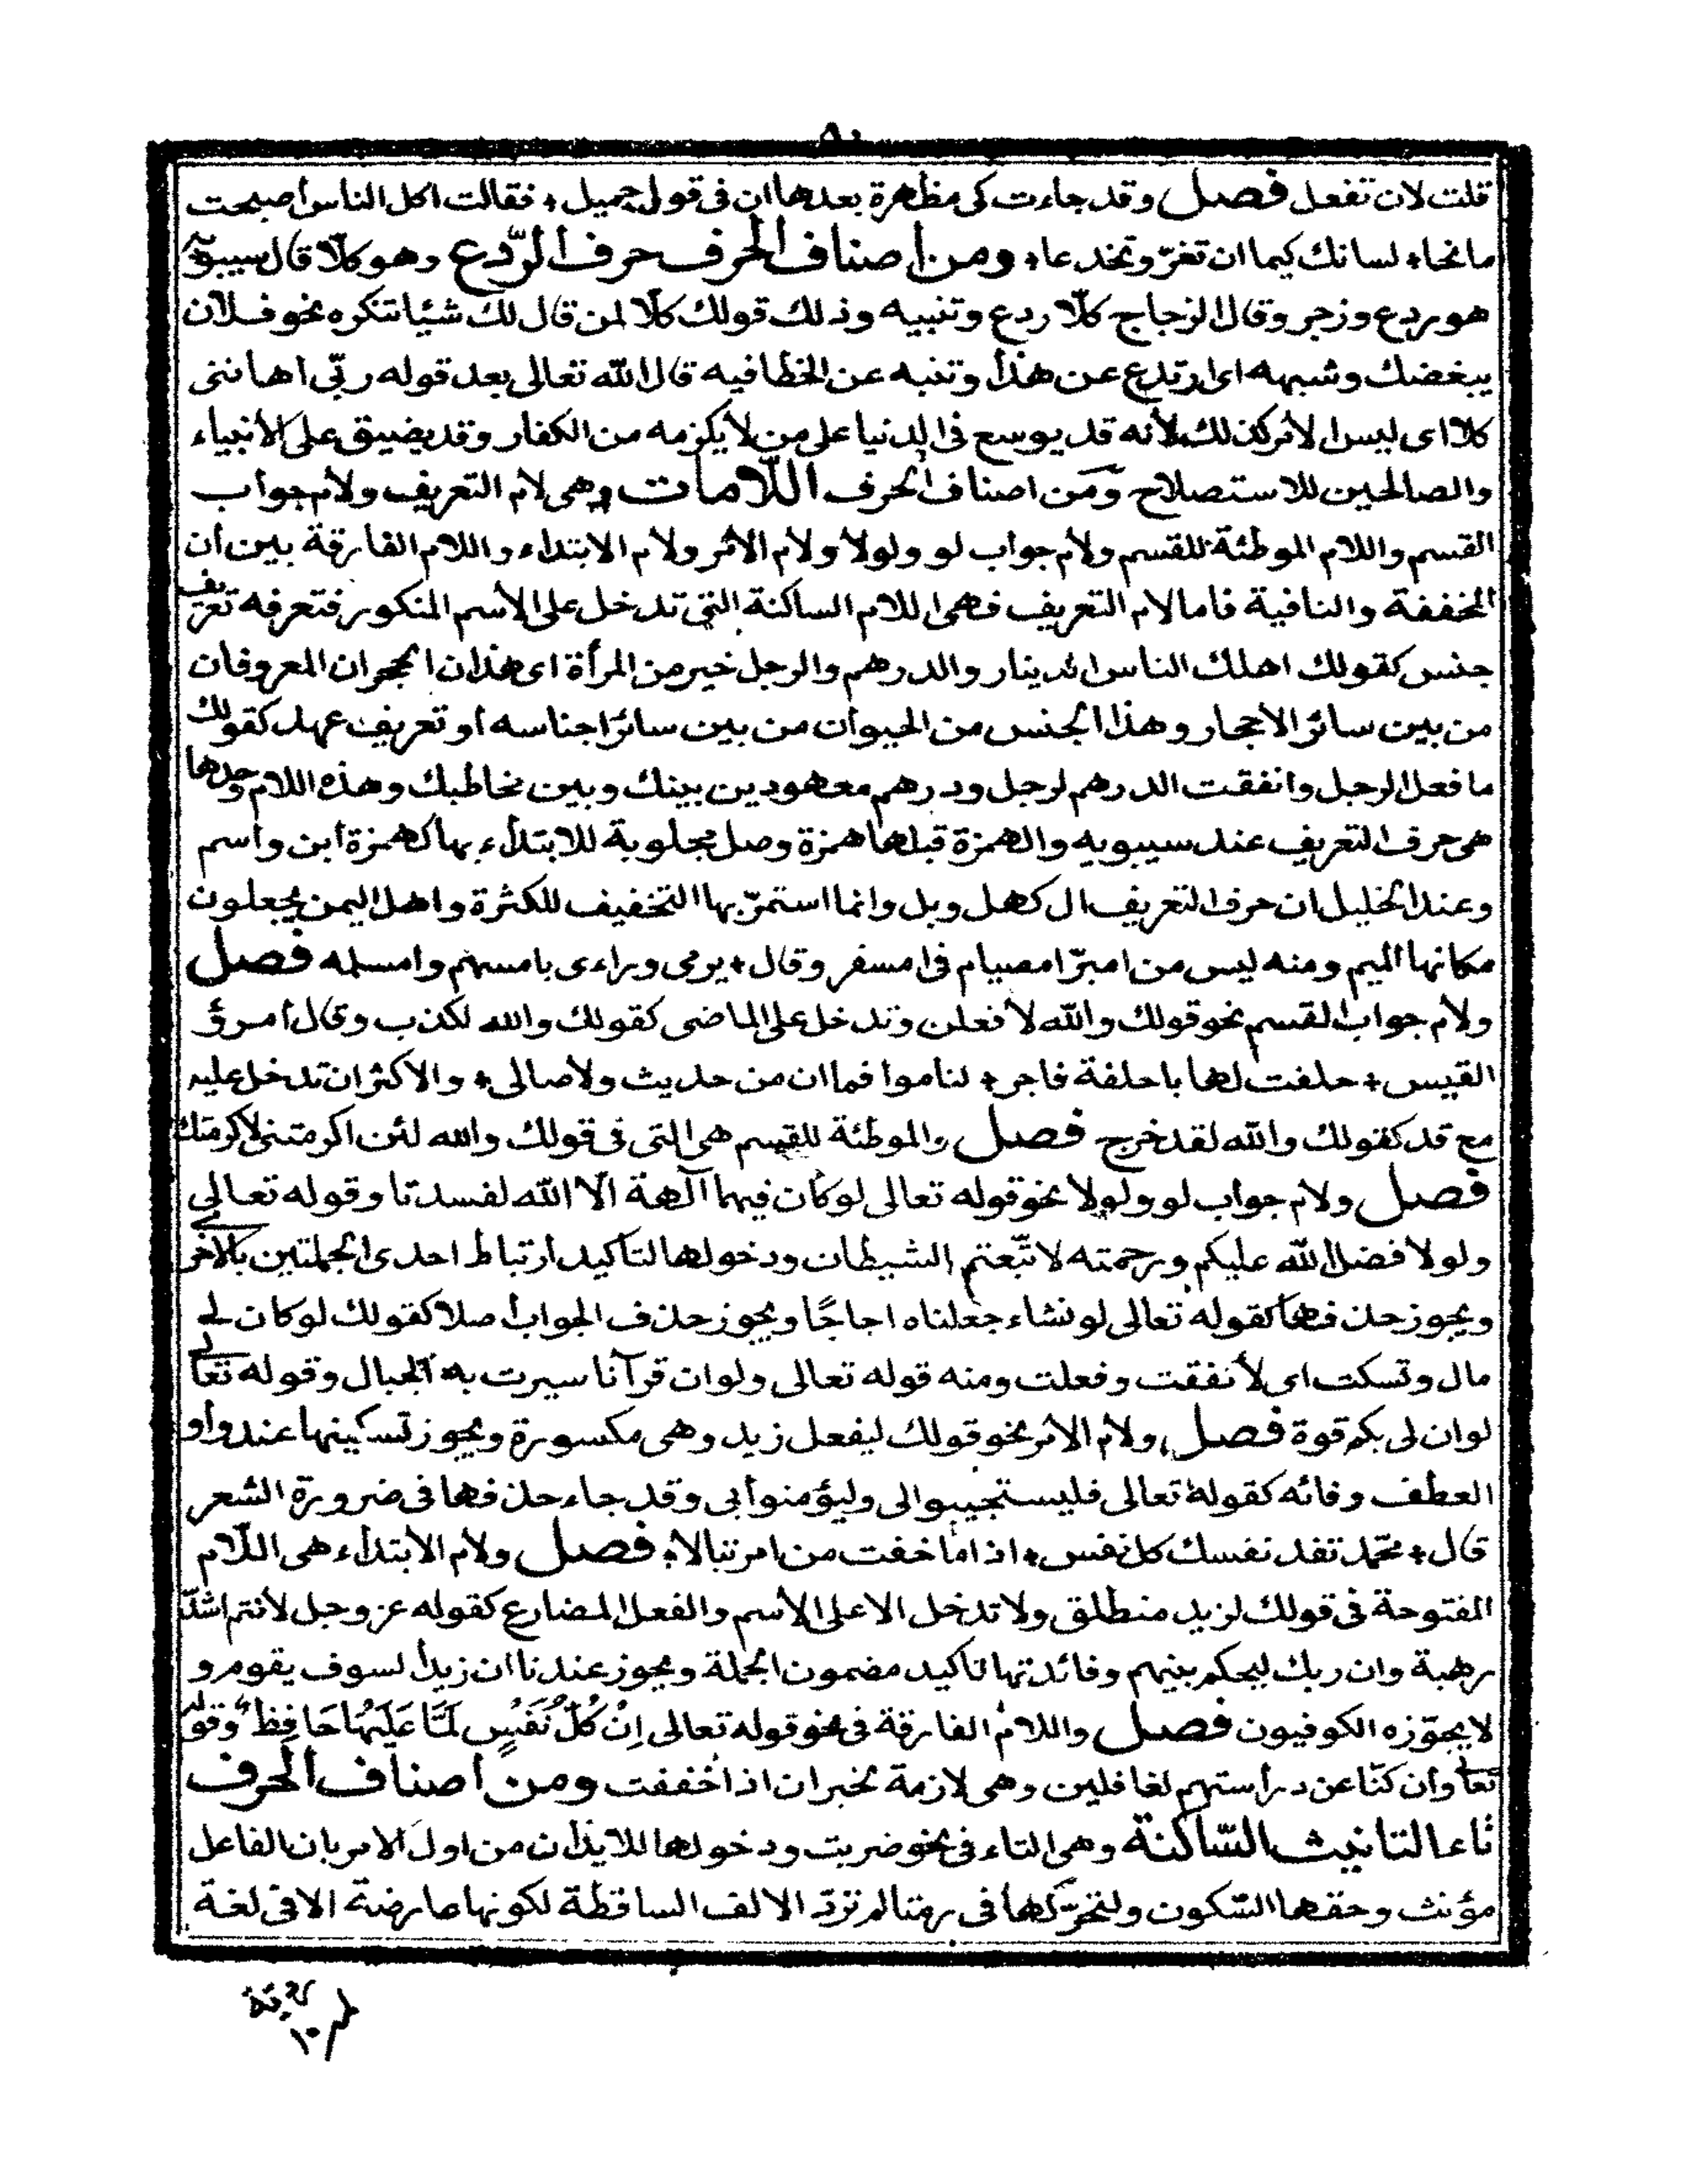 ٨٠
قلت لان تفعل فصل وقد جاءت كى مظهرة بعدها ان فى قول جميل ٭ فقالت اكل الناس أصبحت
مانحا ٭ لسانك كيما ان تغرّ وتخدعا ٭ ومن أصناف الحرف حرف الرّدع وهو كلّا قال سيبويه
هو ردع وزجر وقال الزجاج كلّا ردع وتنبيه وذلك قولك كلّا لمن قال لك شئيا تنكره نحو فلان
يبغضك وشبهه اى ارتدع عن هذا وتنبه عن الخطا فيه قال الله تعالى بعد قوله ربّى اهاننى
كلا اى ليس الأمر كذلك لأنه قد يوسع فى الدنيا على من لا يكرمه من الكفار وقد يضيق على الأنبياء
والصالحين للاستصلاح ومن اصناف الحرف اللّامات وهى لام التعريف ولام جواب
القسم واللام الموطئة للقسم ولام جواب لو ولولا ولام الأمر ولام الابتداء واللام الفارقة بين أن
المخففة والنافية فاما لام التعريف فهى اللام الساكنة التى تدخل على الأسم المنكور فتعرفه تعريف
جنس كقولك اهلك الناس الدينار والدرهم والرجل خير من المرأة اى هذان الحجران المعروفان
من بين سائر الأحجار وهذا الجنس من الحيوان من بين سائر اجناسه أو تعريف عهد كقولك
ما فعل الرجل وانفقت الدرهم لرجل ودرهم معهودين بينك وبين مخاطبك وهذه اللام وحدها
هى حرف التعريف عند سيبويه والهمزة قبلها همزة وصل مجلوبة للابتداء بها كهمزة ابن واسم
وعند الخليل ان حرف التعريف ال كهل وبل وانما استمرّ بها التخفيف للكثرة واهل اليمن يجعلون
مكانها الميم ومنه ليس من امبرّ امصيام فى امسفر وقال ٭ يرمى وراءى بامسهم وامسلمه فصل
ولام جواب القسم نحو قولك والله لأفعلن وتدخل على الماضى كقولك والله لكذب وقال أمرؤ
القيس ٭ حلفت لها باحلفة فاجر ٭ لناموا فما ان من حديث ولا صالى ٭ والاكثر ان تدخل عليه
مع قد كقولك والله لقد خرج فصل والموطئة للقسم هى التى فى قولك والله لئن اكرمتنى لأكرمتك
فصل ولام جواب لو ولولا نحو قوله تعالى لو كان فيهما آلهة الّا الله لفسدتا وقوله تعالى
ولولا فضل الله عليكم ورحمته لاتّبعتم الشيطان ودخولها لتأكيد ارتباط احدى الجملتين بالأخرى
ويجوز حذفها كقوله تعالى لو نشاء جعلناه اجاجًا ويجوز حذف الجواب أصلا كقولك لو كان لى
مال وتسكت اى لأنفقت وفعلت ومنه قوله تعالى ولو ان قرآنا سيرت به الجبال وقوله تعالى
لو ان لى بكم قوة فصل ولام الأمر نحو قولك ليفعل زيد وهى مكسورة ويجوز تسكينها عند واو
العطف وفائه كقوله تعالى فليستجيبوا لى وليؤمنوا بى وقد جاء حذفها فى ضرورة الشعر
قال ٭ محمّد تفد نفسك كل نفس ٭ اذا ما خفت من امر تبالا ٭ فصل ولام الابتداء هى اللّام
المفتوحة فى قولك لزيد منطلق ولا تدخل الا على الأسم والفعل المضارع كقوله عز وجل لأنتم اشدّ
رهبة وان ربك ليحكم بينهم وفائدتها تاكيد مضمون الجملة ويجوز عندنا ان زيدا لسوف يقوم و
لا يجوّزه الكوفيون فصل واللام الفارقة فى نحو قوله تعالى إِنْ كُلُّ نَفْسٍ لَمَّا عَلَيْهَا حَافِظٌ وقوله
تعا وان كنّا عن دراستهم لغافلين وهى لازمة لخبر ان اذا خففت ومن أصناف الحرف
تاء التانيث السّاكنة وهى التاء فى نحو ضربت ودخولها للايذان من اول الامر بان الفاعل
مؤنث وحقها السّكون ولتحرّكها فى رمتا لم تردّ الالف الساقطة لكونها عارضة الا فى لغة